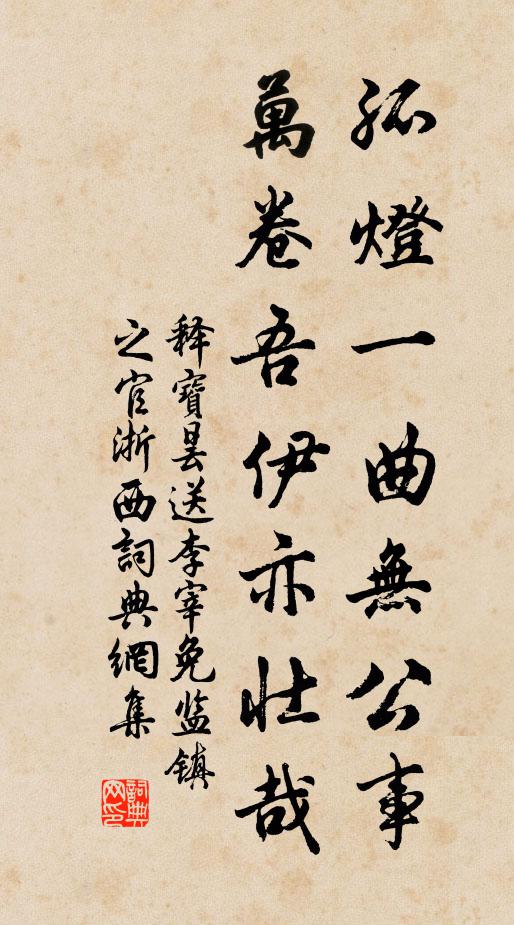 孤燈一曲無公事
萬卷吾伊亦壯哉
释寶曇送李宰免监镇
之官浙西詞典網集
詞典
网印